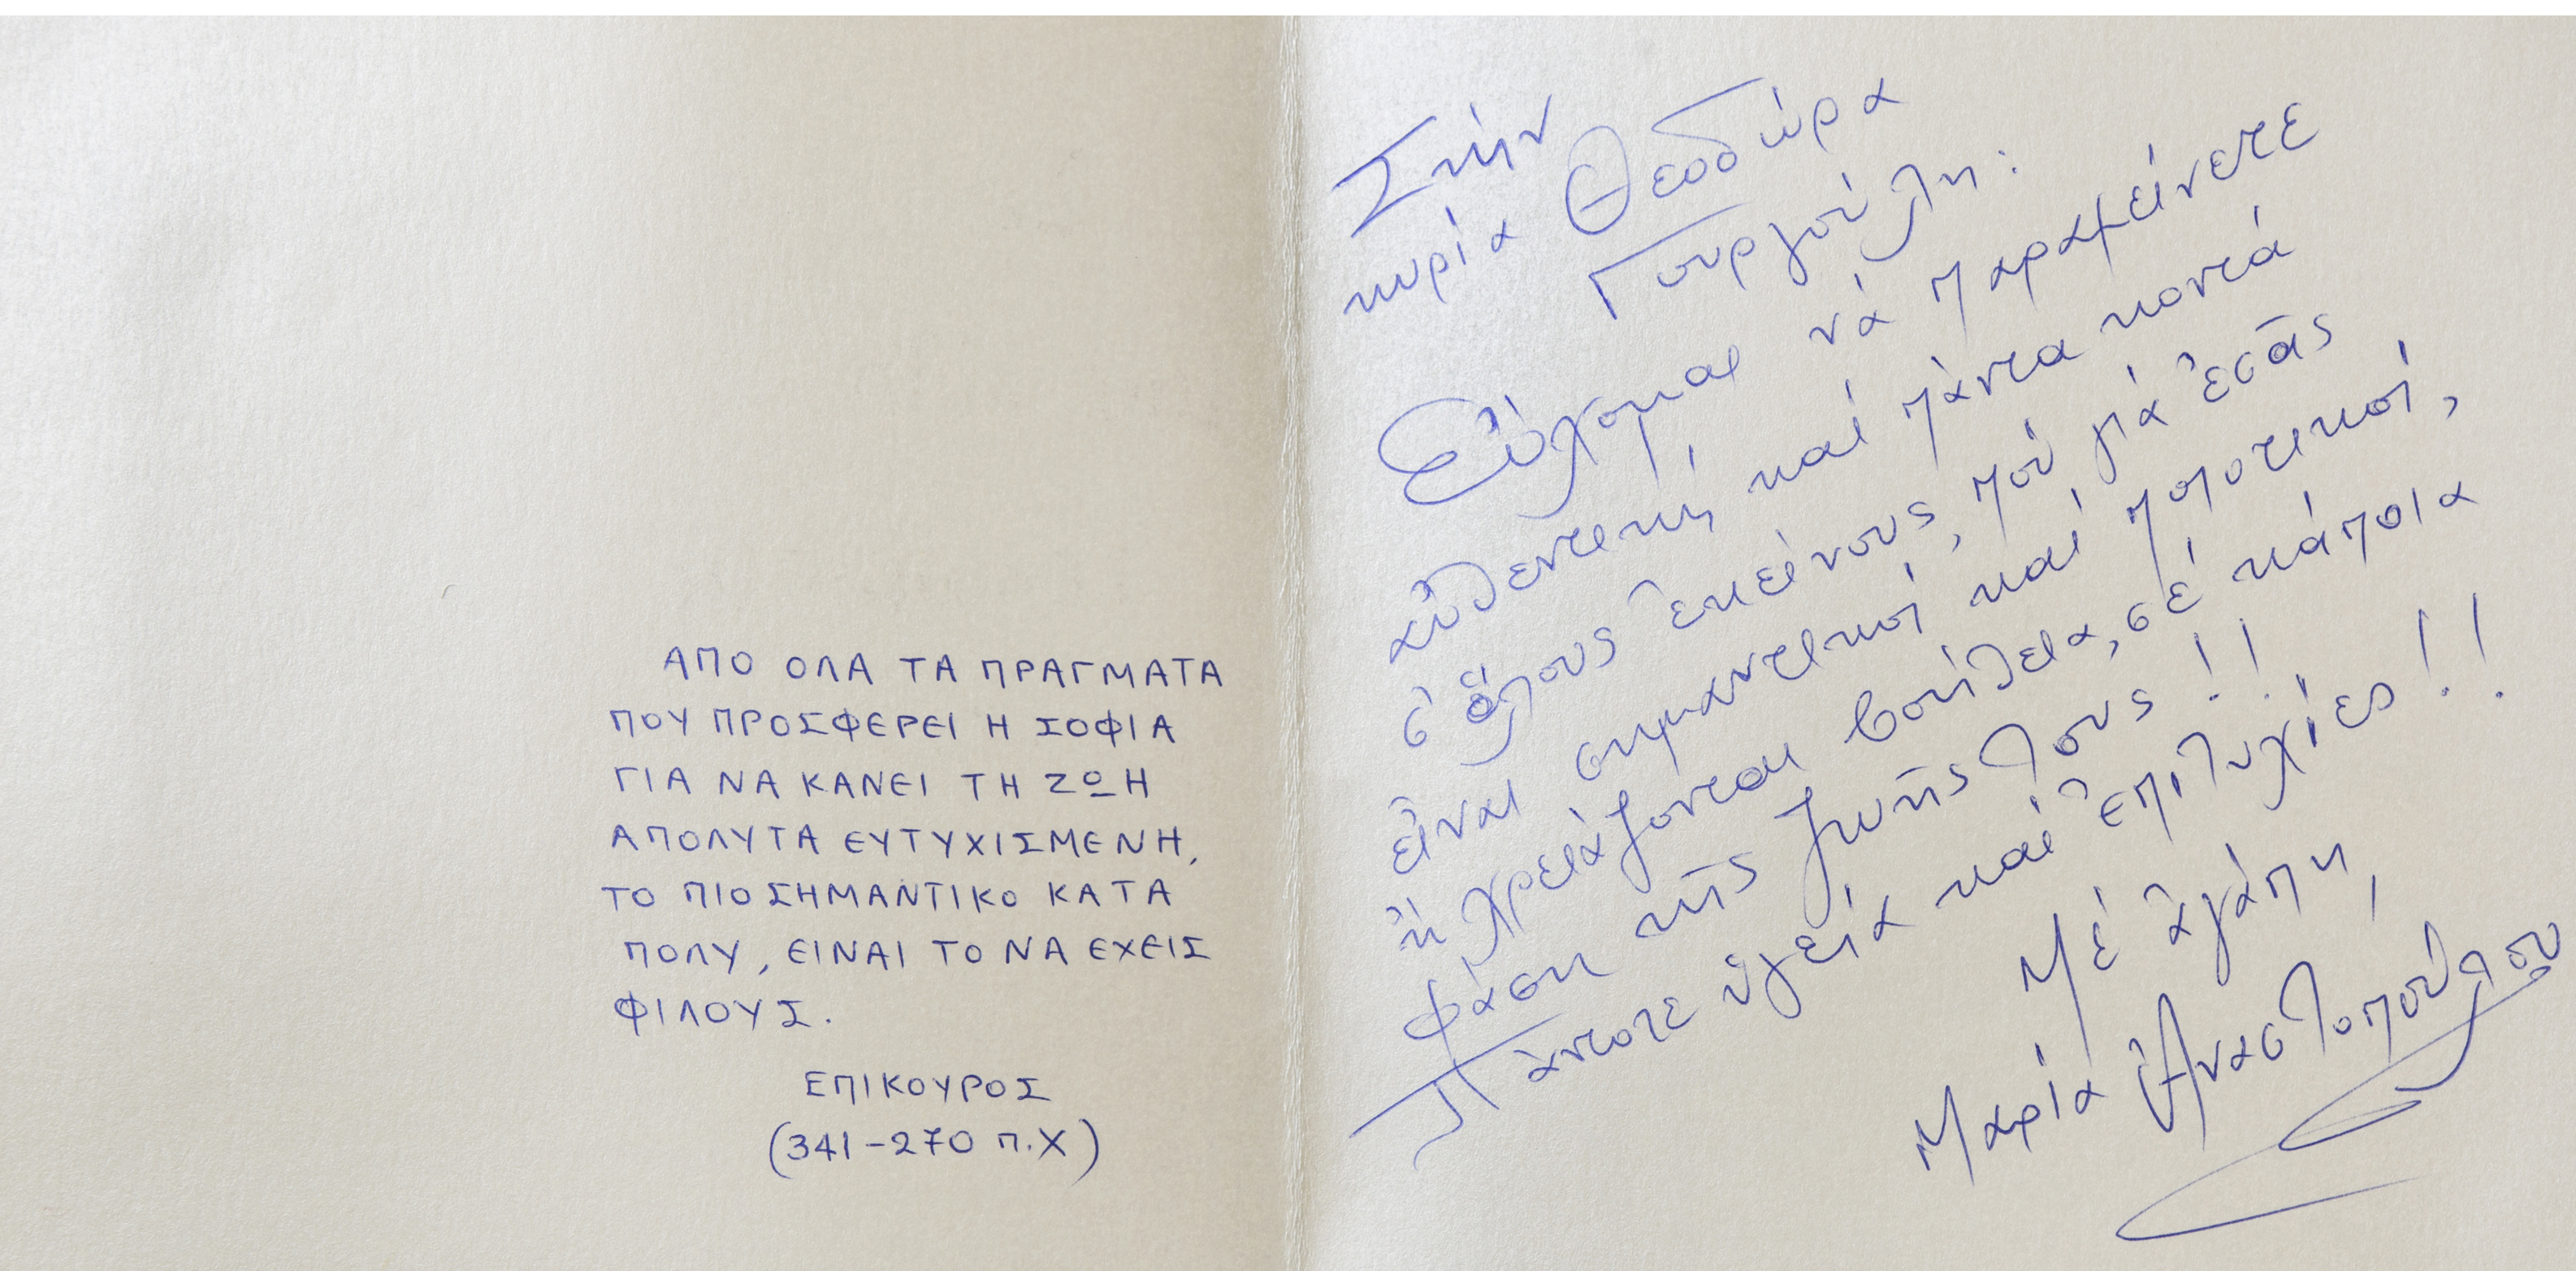 ΑΠΟ ΟΛΑ ΤΑ ΠΡΑΓΜΑΤΑ
ΠΟΥ ΠΡΟΣΦΕΡΕΙ Η ΣΟΦΙΑ
ΓΙΑ ΝΑ ΚΑΝΕΙ ΤΗ ΖΩΗ
ΑΠΟΛΥΤΑ ΕΥΤΥΧΙΣΜΕΝΗ,
ΤΟ ΠΙΟ ΣΗΜΑΝΤΙΚΟ ΚΑΤΑ
ΠΟΛΥ, ΕΙΝΑΙ ΤΟ ΝΑ ΕΧΕΙΣ
ΦΙΛΟΥΣ.
ΕΠΙΚΟΥΡΟΣ
(341-270 π.Χ)
Στήν
κυρία Θεοδώρα
Γουργούλη:
Εὔχομαι νά παραμείνετε
αὐθεντική καί πάντα κοντά
σ' ὅλους ἐκείνους, πού γιά ἐσᾶς
εἶναι σημαντικοί καί ποιοτικοί,
ἤ χρειάζονται βοήθεια, σέ κάποια
φάση τῆς ζωῆς τους!!
Πάντοτε ὑγεία καί ἐπιτυχίες!!
Μέ ἀγάπη,
Μαρία Ἀναστοπούλου